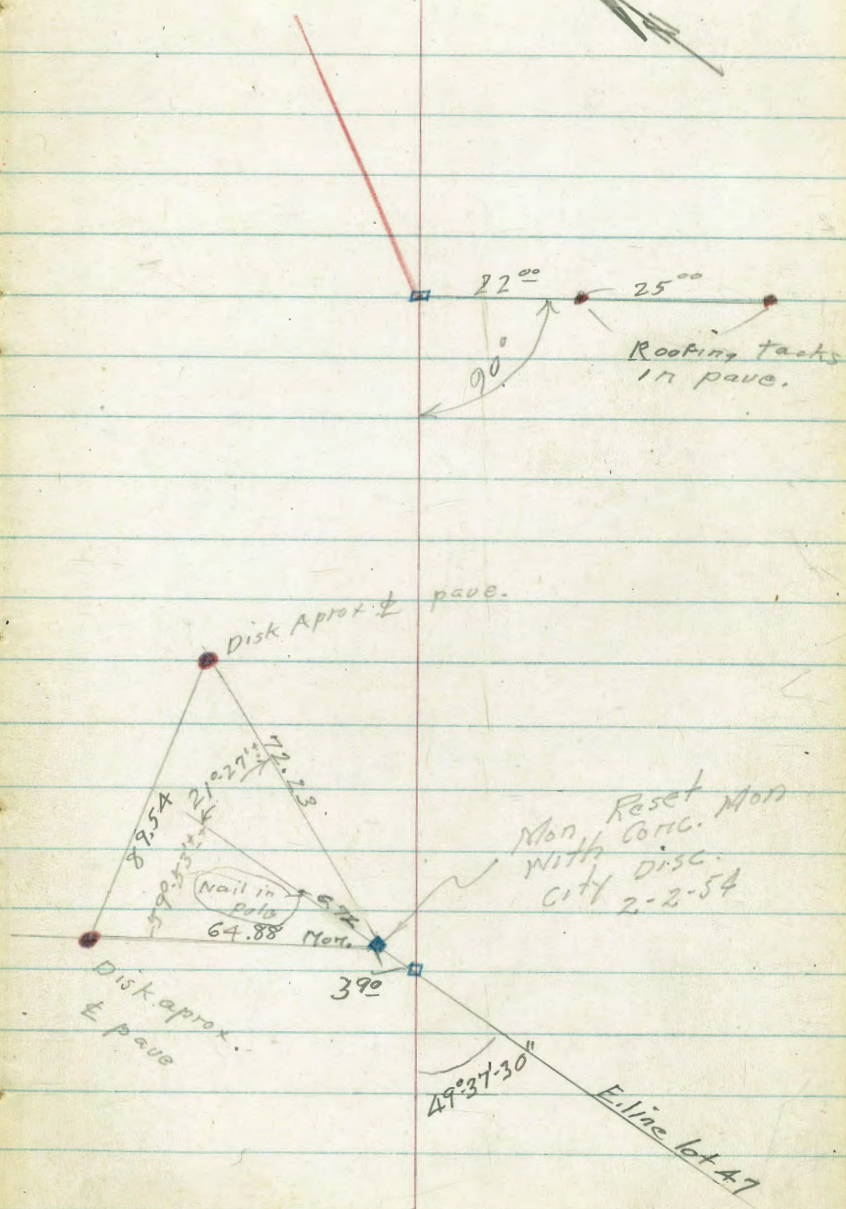 22⁰⁰ 25⁰⁰
90°
Roofing tacks
in pave.
Disk Aprox ℄ pave.
72.23
21°-27'±
89.54
59°-53'±
Nail in
pole
6.72
64.88 Mon.
Mon. Reset
With Conc. Mon
City Disc.
2-2-54
39⁰
Disk aprox.
℄ pave
49°-37'-30"
E. line lot 47